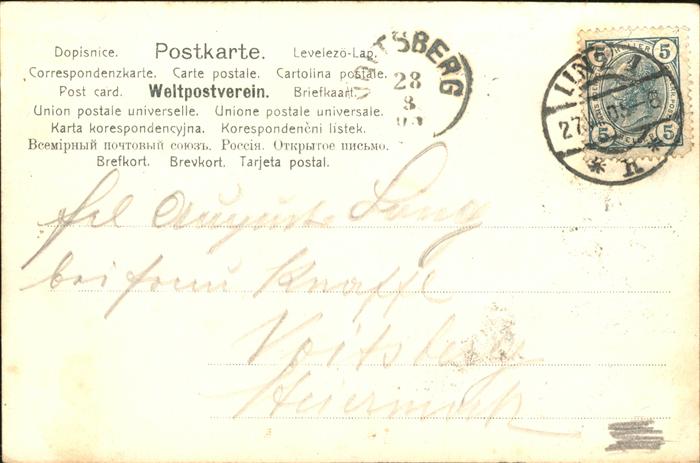 Dopisnice. Postkarte. Levelezö-Lap.
Correspondenzkarte. Carte postale. Cartolina postale.
Post card. Weltpostverein. Briefkaart.
Union postale universelle. Unione postale universale.
Karta korespondencyjna. Korespondenčni lístek.
Всемірный почтовый союзъ. Россія. Открытое письмо.
Brefkort. Brevkort. Tarjeta postal.
VOITSBERG
28
8
5 5
LINZ 1
27
5 5
* n *
frl Auguste Lang
bei frau Knaffl
Voitsberg
Steiermark